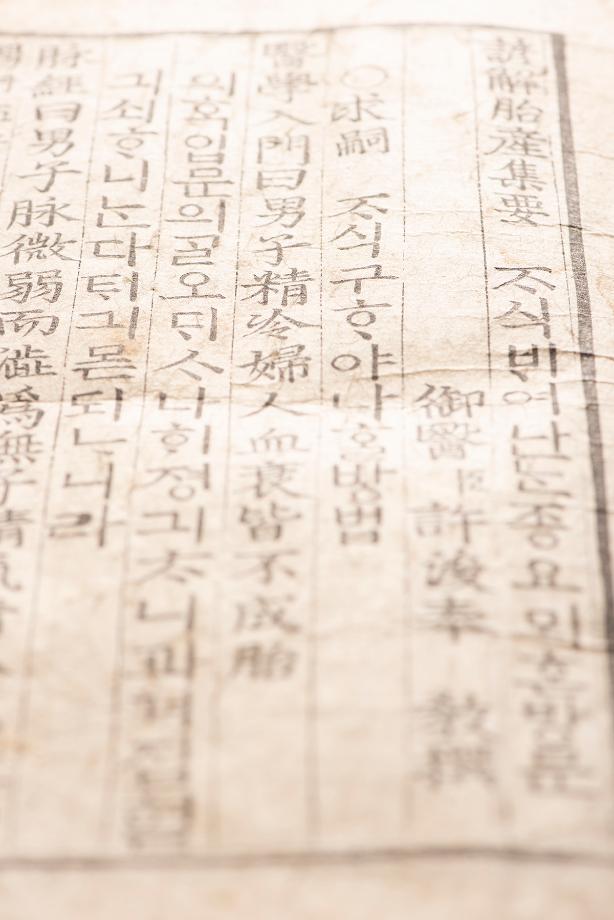 諺解胎產集要 ᄌᆞ식ᄇᆡ여나ᄂᆞᆫ종요
御醫臣許浚奉 敎撰
○求嗣 ᄌᆞ식구ᄒᆞ야나ᄒᆞᆯ방법
醫學入門曰男子精冷婦人血衰皆不成胎
의ᄒᆞᆨ입문의ᄀᆞᆯ오ᄃᆡᄉᆞ나ᄒᆡ졍긔ᄎᆞ니과
긔쇠ᄒᆞ니ᄂᆞᆫ다ᄐᆡ긔몯되ᄂᆞ니라
脉經曰男子脉微弱而澁爲無子精氣